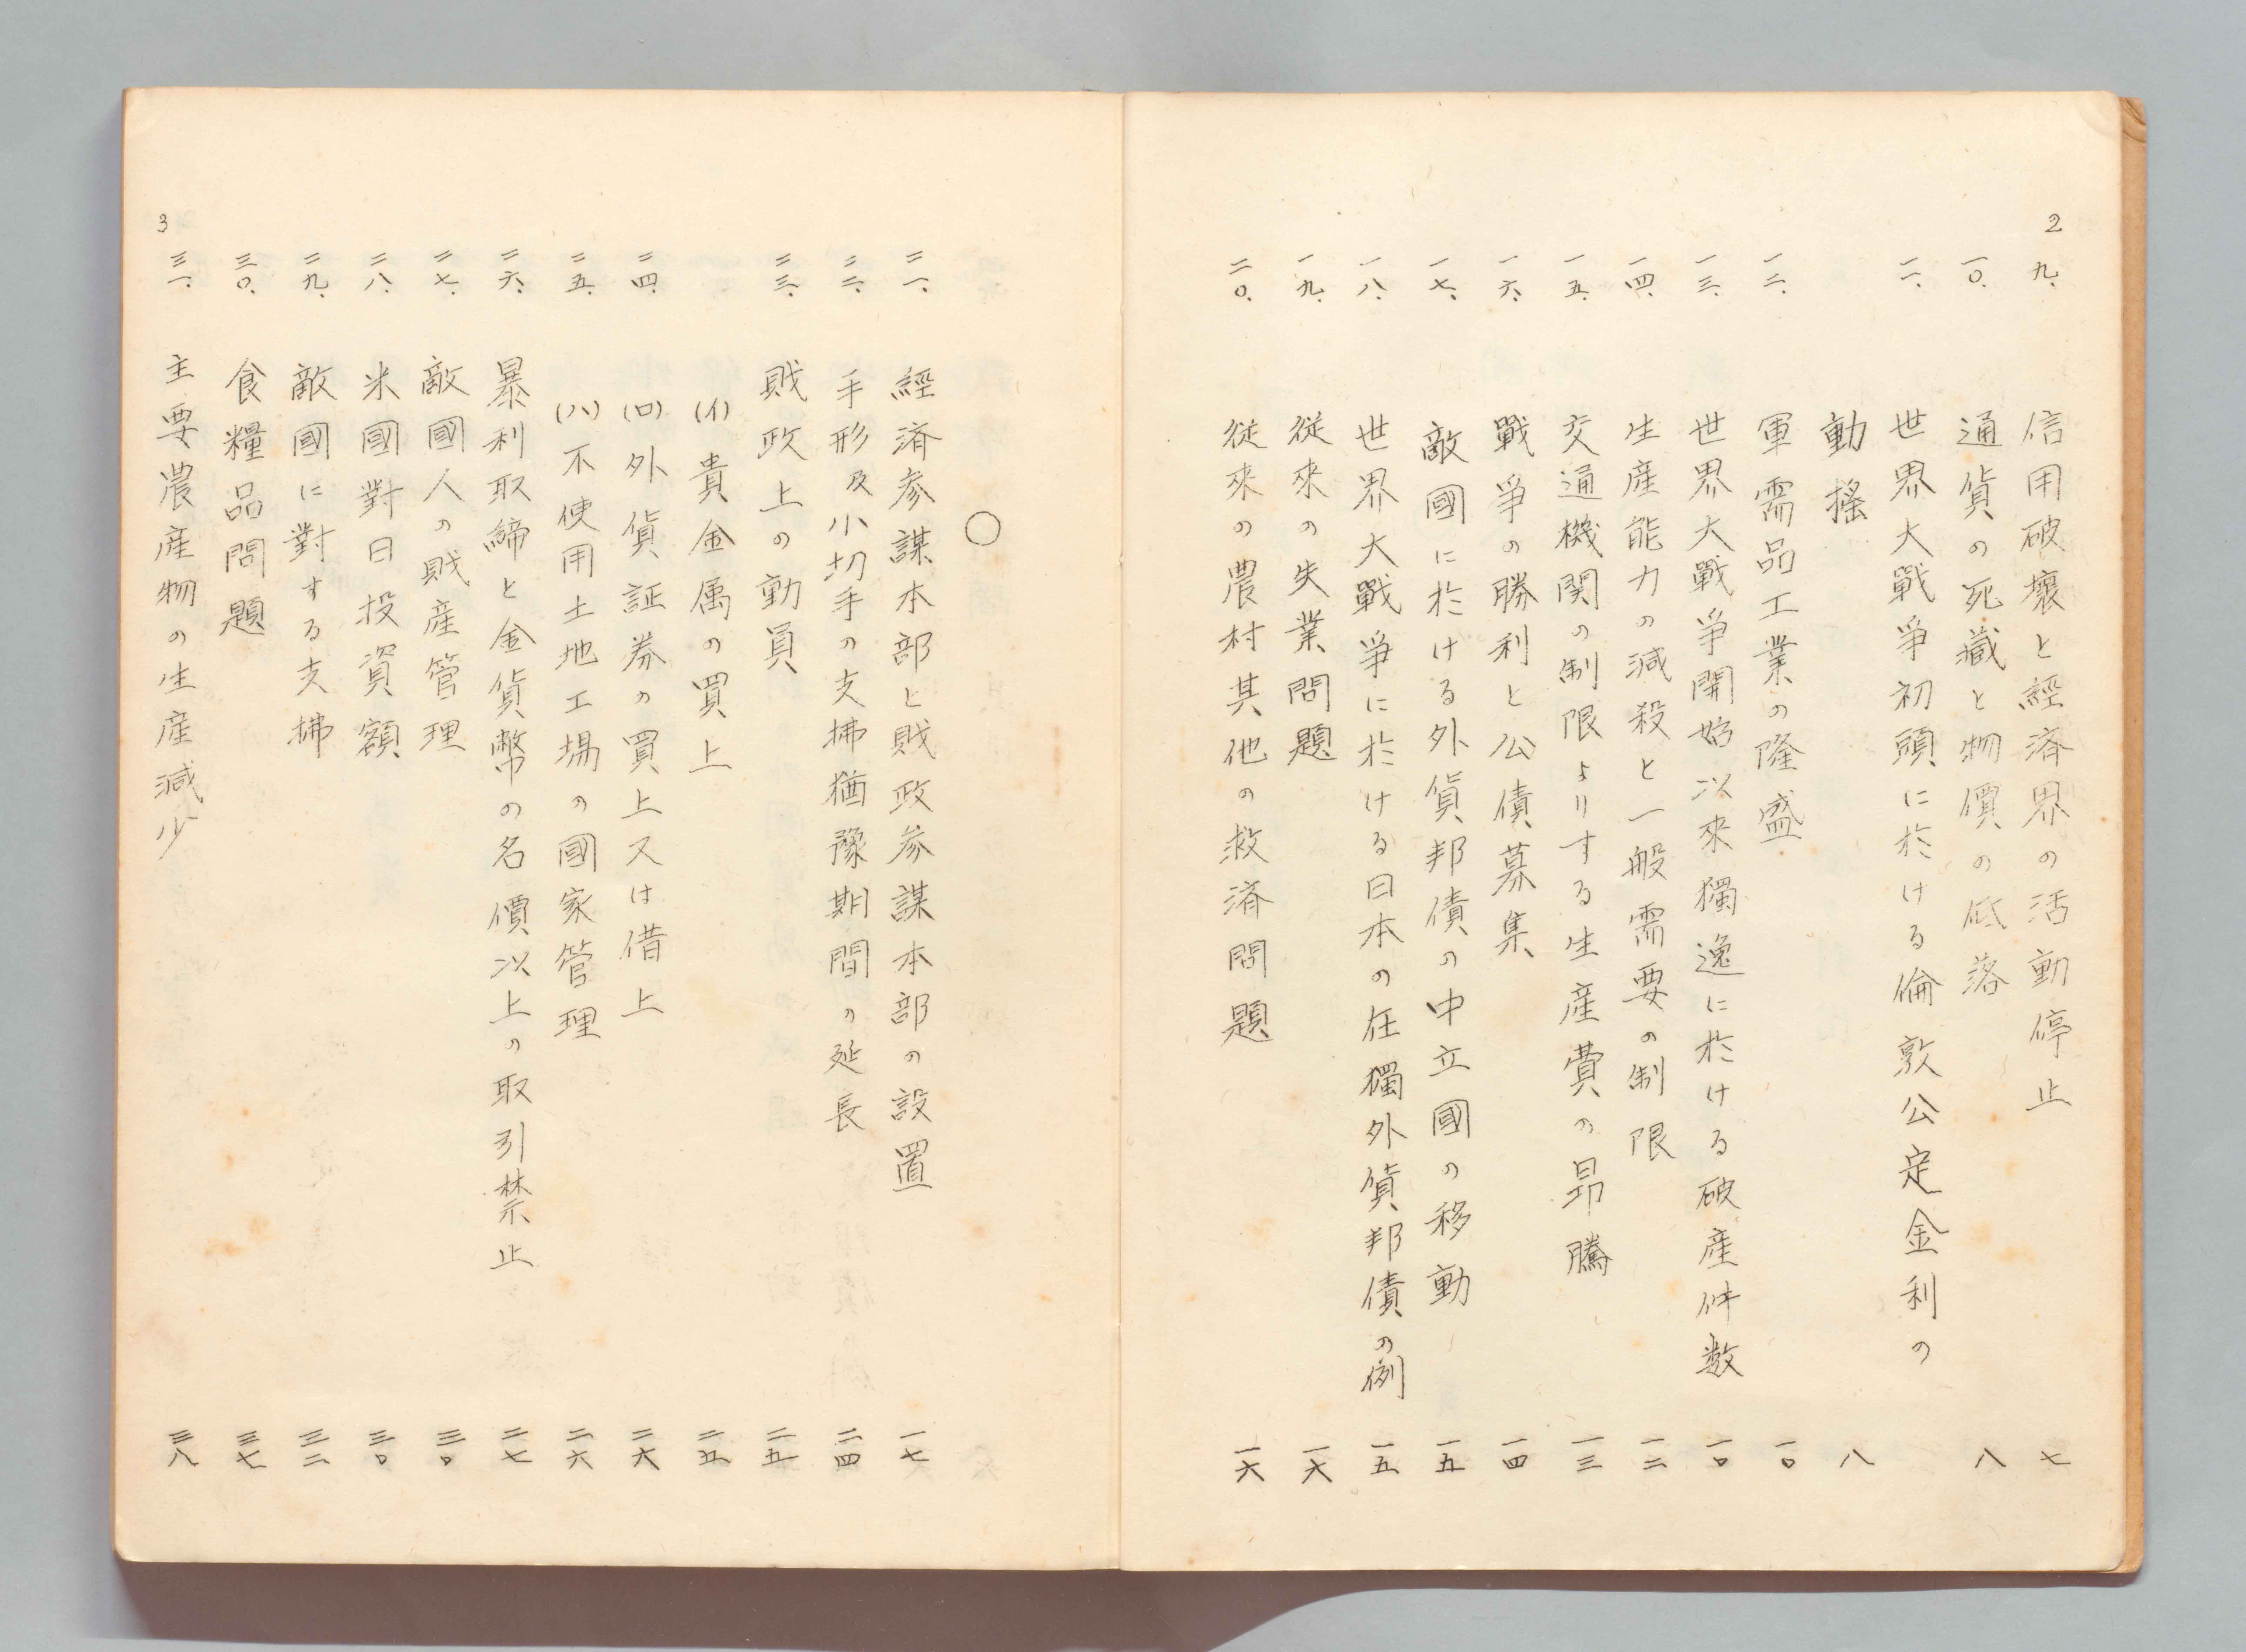 2
九. 信用破壞と經済界の活動停止 七
一〇. 通貨の死藏と物價の低落 八
一一. 世界大戰爭初頭に於ける倫敦公定金利の
動搖 八
一二. 軍需品工業の隆盛 一〇
一三. 世界大戰爭開始以來獨逸に於ける破産件数 一〇
一四. 生産能力の減殺と一般需要の制限 一二
一五. 交通機関の制限よりする生産費の昂騰 一三
一六. 戰爭の勝利と公債募集 一四
一七. 敵國に於ける外貨邦債の中立國の移動 一五
一八. 世界大戰爭に於ける日本の在獨外貨邦債の例 一五
一九. 從來の失業問題 一六
二〇. 從來の農村其他の救済問題 一六
〇
二一. 經済参謀本部と財政参謀本部の設置 一七
二二. 手形及小切手の支拂猶豫期間の延長 二四
二三. 財政上の動員 二五
(イ) 貴金属の買上 二五
二四. (ロ) 外貨証券の買上又は借上 二六
二五. (ハ) 不使用土地工場の國家管理 二六
二六. 暴利取締と金貨幣の名價以上の取引禁止 二七
二七. 敵國人の財産管理 三〇
二八. 米國對日投資額 三〇
二九. 敵國に對する支拂 三二
三〇. 食糧品問題 三七
三一. 主要農産物の生産減少 三八
3